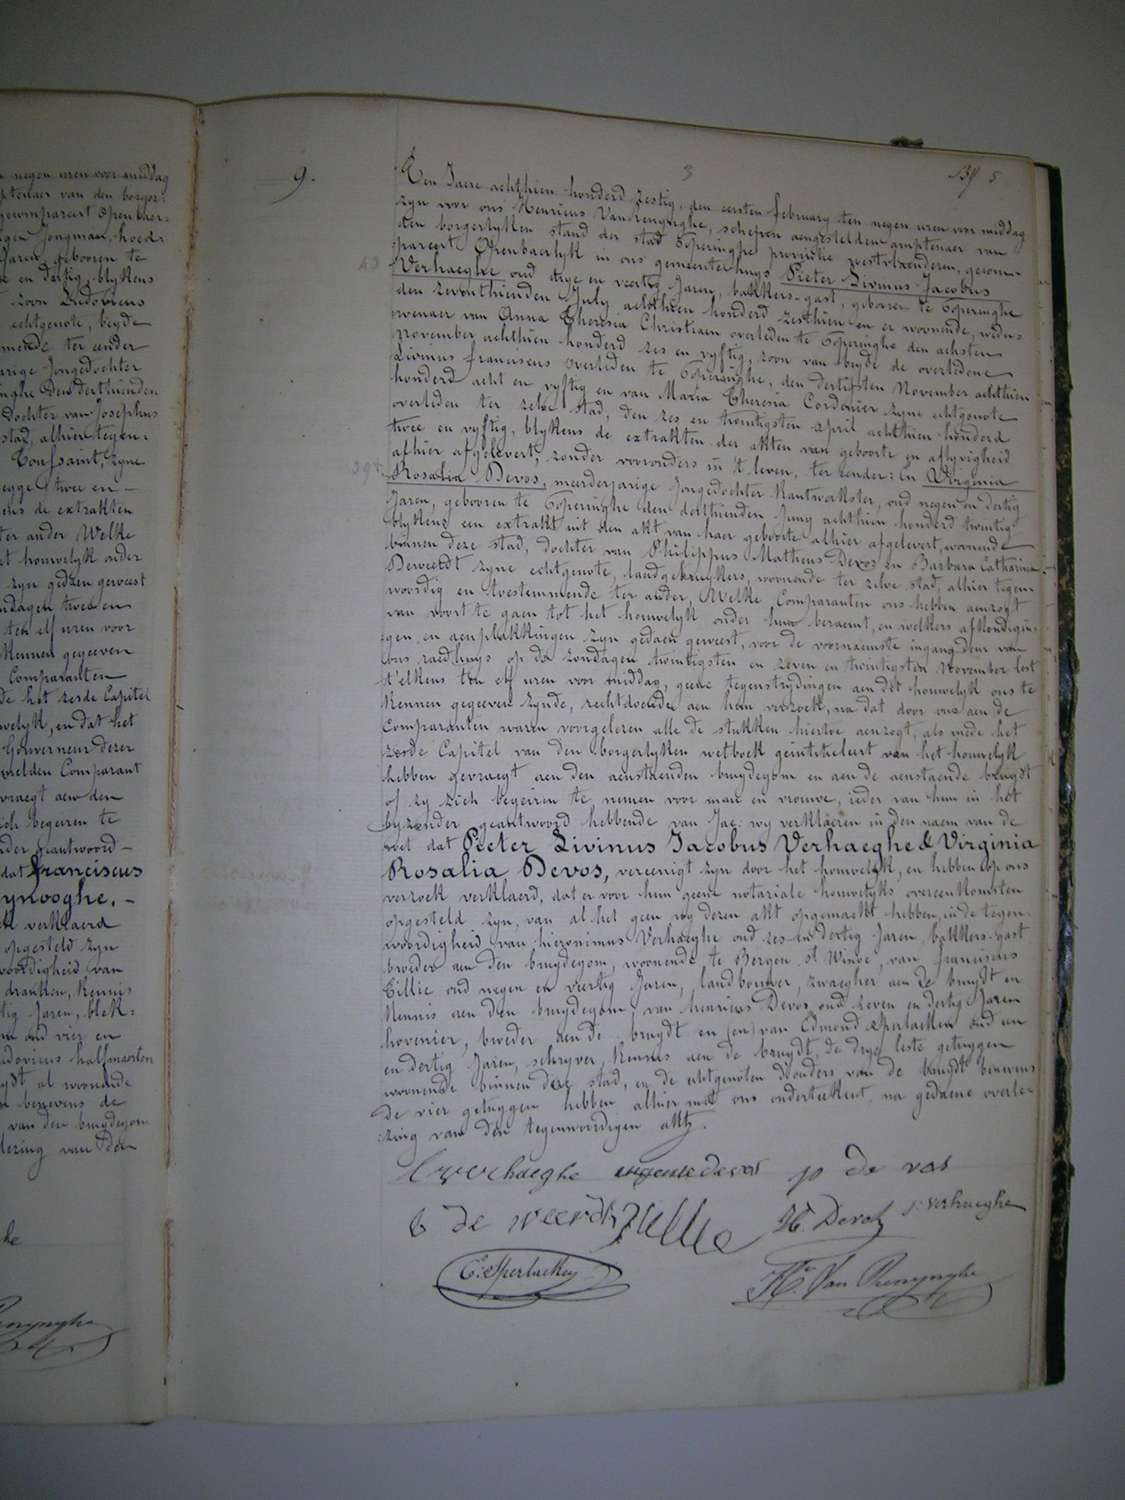 n negen uren voor middag
ptenaer van den borger-
gecompareert Openbaer-
Jongman, hoed-
Jaren, gebooren te
e en dertig, blykens
zoon Ludovicus
echtgenote, beyde
mende ter eender
arige Jongedochter
inghe Den derthienden
Dochter van Josephus
stad, alhier tegen-
Toussaint, zyne
zegge twee en
ens de extrakten
ter ander Welke
et houwelyk onder
zyn gedaen geweest
ndagen twee en
ten elf uren voor
Kennen gegeeven
Comparanten
de het zesde Capitel
welyk, en dat het
Gouverneur dezer
melden Comparant
vraegt aen den
ich begeiren te
nder geantwoord
dat Franciscus
ynooghe,
verklaerd
opgesteld zyn
woordigheid van
dranken, Kennis
tig Jaren, blek-
oud vier en
udovicus halfmaerten
ydt al woonende
benevens de
van den bruydegom
lezing van den
9.
3
5
Ten Jaere achthien honderd zestig, den eersten february ten negen uren voor middag
zyn voor ons Henricus Vanrenynghe, schepen aengestelden amptenaer van
den borgerlyken stand der stad Poperinghe provincie westvlaenderen, gecom-
pareert Openbaerlyk in ons gemeentehuys Pieter Livinus Jacobus
Verhaeghe oud drye en veertig Jaren, bakkers-gast, geboren te Poperinghe
den zeventhienden July achthien honderd zesthien en er woonende, wedu-
wenaer van Anna Theresia Christiaen overleden te Poperinghe den achsten
November achthien honderd zes en vyftig, zoon van beyde de overledene
Livinus franciscus overleden te Poperinghe, den dertigsten November achthien
honderd acht en vyftig en van Maria Theresia Cordonier zyne echtgenote
overleden ter zelve stad, den zes en twintigsten april achthien honderd
twee en vyftig, blykens de extrakten der akten van geboorte en aflyvigheid
alhier afgelevert, zonder voorouders in 't leven, ter eender: En Virginia
Rosalia Devos, meerderjarige Jongedochter Kantwerkster, oud negen en dertig
Jaren, gebooren te Poperinghe den derthienden Juny achthien honderd twintig
blykens een extrakt uit den akt van haer geboorte alhier afgelevert, woonende
binnen deze stad, dochter van Philippus Mattheus Devos en Barbara Catharina
Deweerdt zyne echtgenote, landgebruykers, woonende ter zelve stad, alhier tegen-
woordig en toestemmende ter ander, Welke Comparanten ons hebben aenzogt
van voort te gaen tot het houwelyk onder hun beraemt, en welkers afkondigin-
gen, en aenplakkingen zyn gedaen geweest, voor de voornaemste ingang deur van
ons raedhuys op de zondagen twintigsten en zeven en twintigsten November lest
t'elkens ten elf uren voor middag, geene tegenstrydingen aen dit houwelyk ons te
Kennen gegeeven zynde, rechtdoende aen hun verzoek, na dat door ons aen de
Comparanten waren voorgelezen alle de stukken hiertoe aenzogt, als mede het
zesde Capitel van den borgerlyken wetboek geintituleert van het houwelyk
hebben gevraegt aen den aenstaenden bruydegom en aen de aenstaende bruydt
of zy zich begeiren te nemen voor man en vrouwe, ieder van hun in het
byzonder geantwoord hebbende van Jae: wy verklaeren in den naem van de
wet dat Pieter Livinus Jacobus Verhaeghe & Virginia
Rosalia Devos, vereenigt zyn door het houwelyk, en hebben op ons
verzoek verklaerd, dat er voor hun geene notariale houwelyks overeenkomsten
opgesteld zyn, van al het geen wy dezen akt opgemaekt hebben, in de tegen-
woordigheid van hieronimus Verhaeghe oud zes en dertig Jaren, bakkers-gast
broeder aen den bruydegom, woonende te Bergen st Winox, van franciscus
Tillie oud negen en veertig Jaren, landbouwer, zwaegher aen de bruydt en
Kennis aen den bruydegom, van henricus Devos oud zeven en dertig Jaren
hovenier, broeder aen de bruydt en (en) van Edmond Sperlaeken oud een
en dertig Jaren, schryver, Kennis aen de bruydt, de drye leste getuygen
woonende binnen deze stad, en de echtgenoten d'ouders van de bruydt benevens
de vier getuygen hebben alhier met ons onderteekent, na gedaene overle-
zing van den tegenwoordigen akt.
verhaeghe devos p de vos
b de weerdt Tillie H. Devos j. verhaeghe
E. Sperlaeken H. Van Renynghe